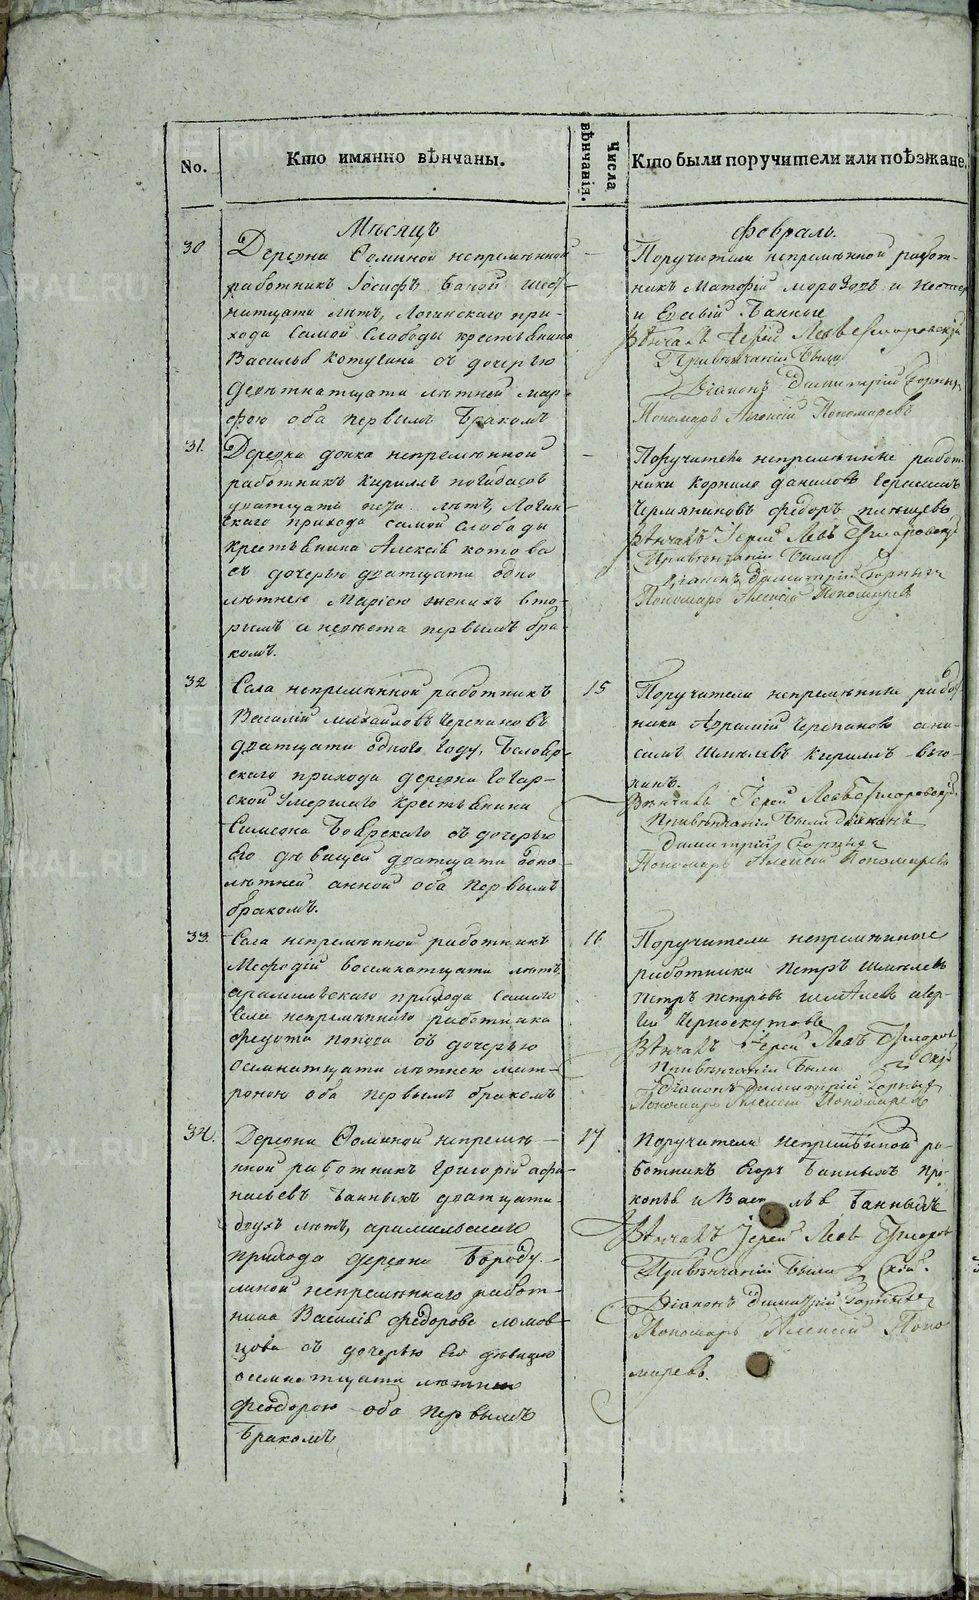 No.
Кто имянно вѣнчаны.
Числа вѣнчанія.
Кто были поручители или поѣзжане.
Мѣсяцъ
Февраль.
30
Деревни Ѳоминой непремѣнной
работникъ Іосифъ Баной шес-
натцати лѣтъ, Логинскаго при-
хода самой Слободы крестьянина
Василья Котугина съ дочерью
девѣтнатцати лѣтней Мар-
фою оба первымъ бракомъ
Поручители непремѣнной работ-
никъ Матфій Морозовъ и Нестер
и Евсѣвій Банные
Вѣнчалъ Іерей Левъ
При вѣнчаніи были
Діаконъ Димитрій
Пономарь Алексій Пономаревъ
31.
Деревни непремѣнной
работникъ Кирилъ
дватцати лѣтъ, Логин-
скаго прихода самой слободы
крестьянина Алексѣя Котова
съ дочерью дватцати одно
лѣтнею Маріею женихъ вто-
рымъ а невѣста первымъ бра-
комъ.
Поручители непремѣнные работ-
ники Корнило Даниловъ Герасимъ
Чермяниновъ Федоръ
Вѣнчалъ Іерей Левъ
При вѣнчаніи были
Діаконъ Димитрій
Пономарь Алексій Пономаревъ
32
Села непремѣнной работникъ
Василій Михайловъ Черепановъ
дватцати одного году,
скаго прихода деревни
ской умершаго крестьянина
Симеона Боярскаго съ дочерью
Его дѣвицей дватцати одно-
лѣтней Анной оба первымъ
бракомъ.
15
Поручители непремѣнные работ
ники Аврамій Черепановъ Ани-
симъ Шмелевъ Кирилъ
Вѣнчалъ Іерей Левъ
При вѣнчаніи были діаконъ
Димитрій
Пономарь Алексій Пономаревъ
33.
Села непремѣнной работникъ
Мефодій восемнатцати лѣтъ,
Арамильскаго прихода самого
Села непремѣннаго работника
Федота Попова съ дочерью
осмнатцати лѣтнею Мат-
роною оба первымъ бракомъ
16
Поручители непремѣнные
работники Петръ Шмелевъ
Петръ Петровъ Шмелевъ Авер-
кій Черноскутовъ
Вѣнчалъ Іерей Левъ
При вѣнчаніи были
Діаконъ Димитрій
Пономарь Алексій Пономаревъ
34.
Деревни Ѳоминой непремѣ-
нной работникъ Григорій Афа-
насьевъ Банныхъ дватцати
двухъ лѣтъ, Арамильскаго
прихода деревни Бороду-
линой непремѣннаго работ-
ника Василія Федорова Ломов-
цова съ дочерью Его дѣвицею
осмнатцати лѣтнею
Феодорою оба первымъ
бракомъ
17
Поручители непремѣнной ра-
ботникъ Егоръ Банныхъ Про-
копѣй и Банныхъ
Вѣнчалъ Іерей Левъ
При вѣнчаніи были
Діаконъ Димитрій
Пономарь Алексій Поно-
маревъ.
METRIKI.GASO-URAL.RU